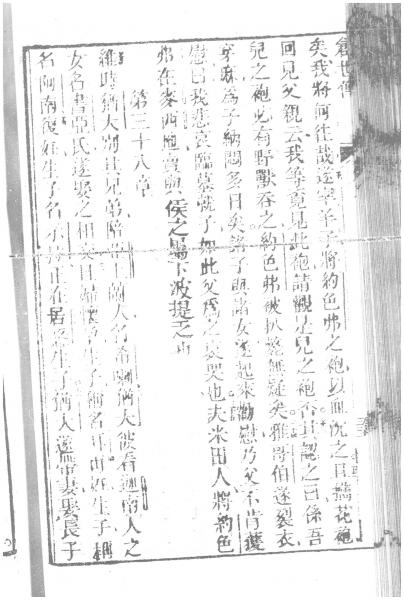 創世傳
矣我將何往哉遂宰羊子將約色弗之袍以血沉之且攜花袍
回見父親云我等竟見此袍請觀是兒之袍否其認之曰係吾
兒之袍必有野獸吞之約色弗被扒楚無疑矣雅哥伯遂裂衣
穿麻為子納悶多日矣諸子與諸女遂起來勸慰乃父不肯獲
慰曰我悲哀臨墓就子如此父為之哀哭也夫米田人將約色
弗在麥西地賣與侯之 下波提乏
第三十八章
維時猶大別其兄弟 人名希喇猶大彼看迦南人之
女名書亞氏遂娶之相交且婦懷孕生子稱名耳再姙生子稱
名阿南復姙生子名示拉正在居 生子猶大遂 妻娶長子